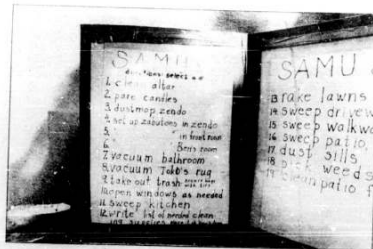 SAMU
directions: select one
1. clean altar
2. pare candles
3. dustmop zendo
4. set up zabutons in zendo
5. " in front room
6. " Ben's room
7. vacuum bathroom
8. vacuum Toko's rug
9. take out trash
10. open windows as needed
11. sweep kitchen
12. write list of needed clean
SAMU
13 rake lawns
14 sweep
15 sweep
16 sweep patio
17 dust sills
18 weeds
19 clean patio